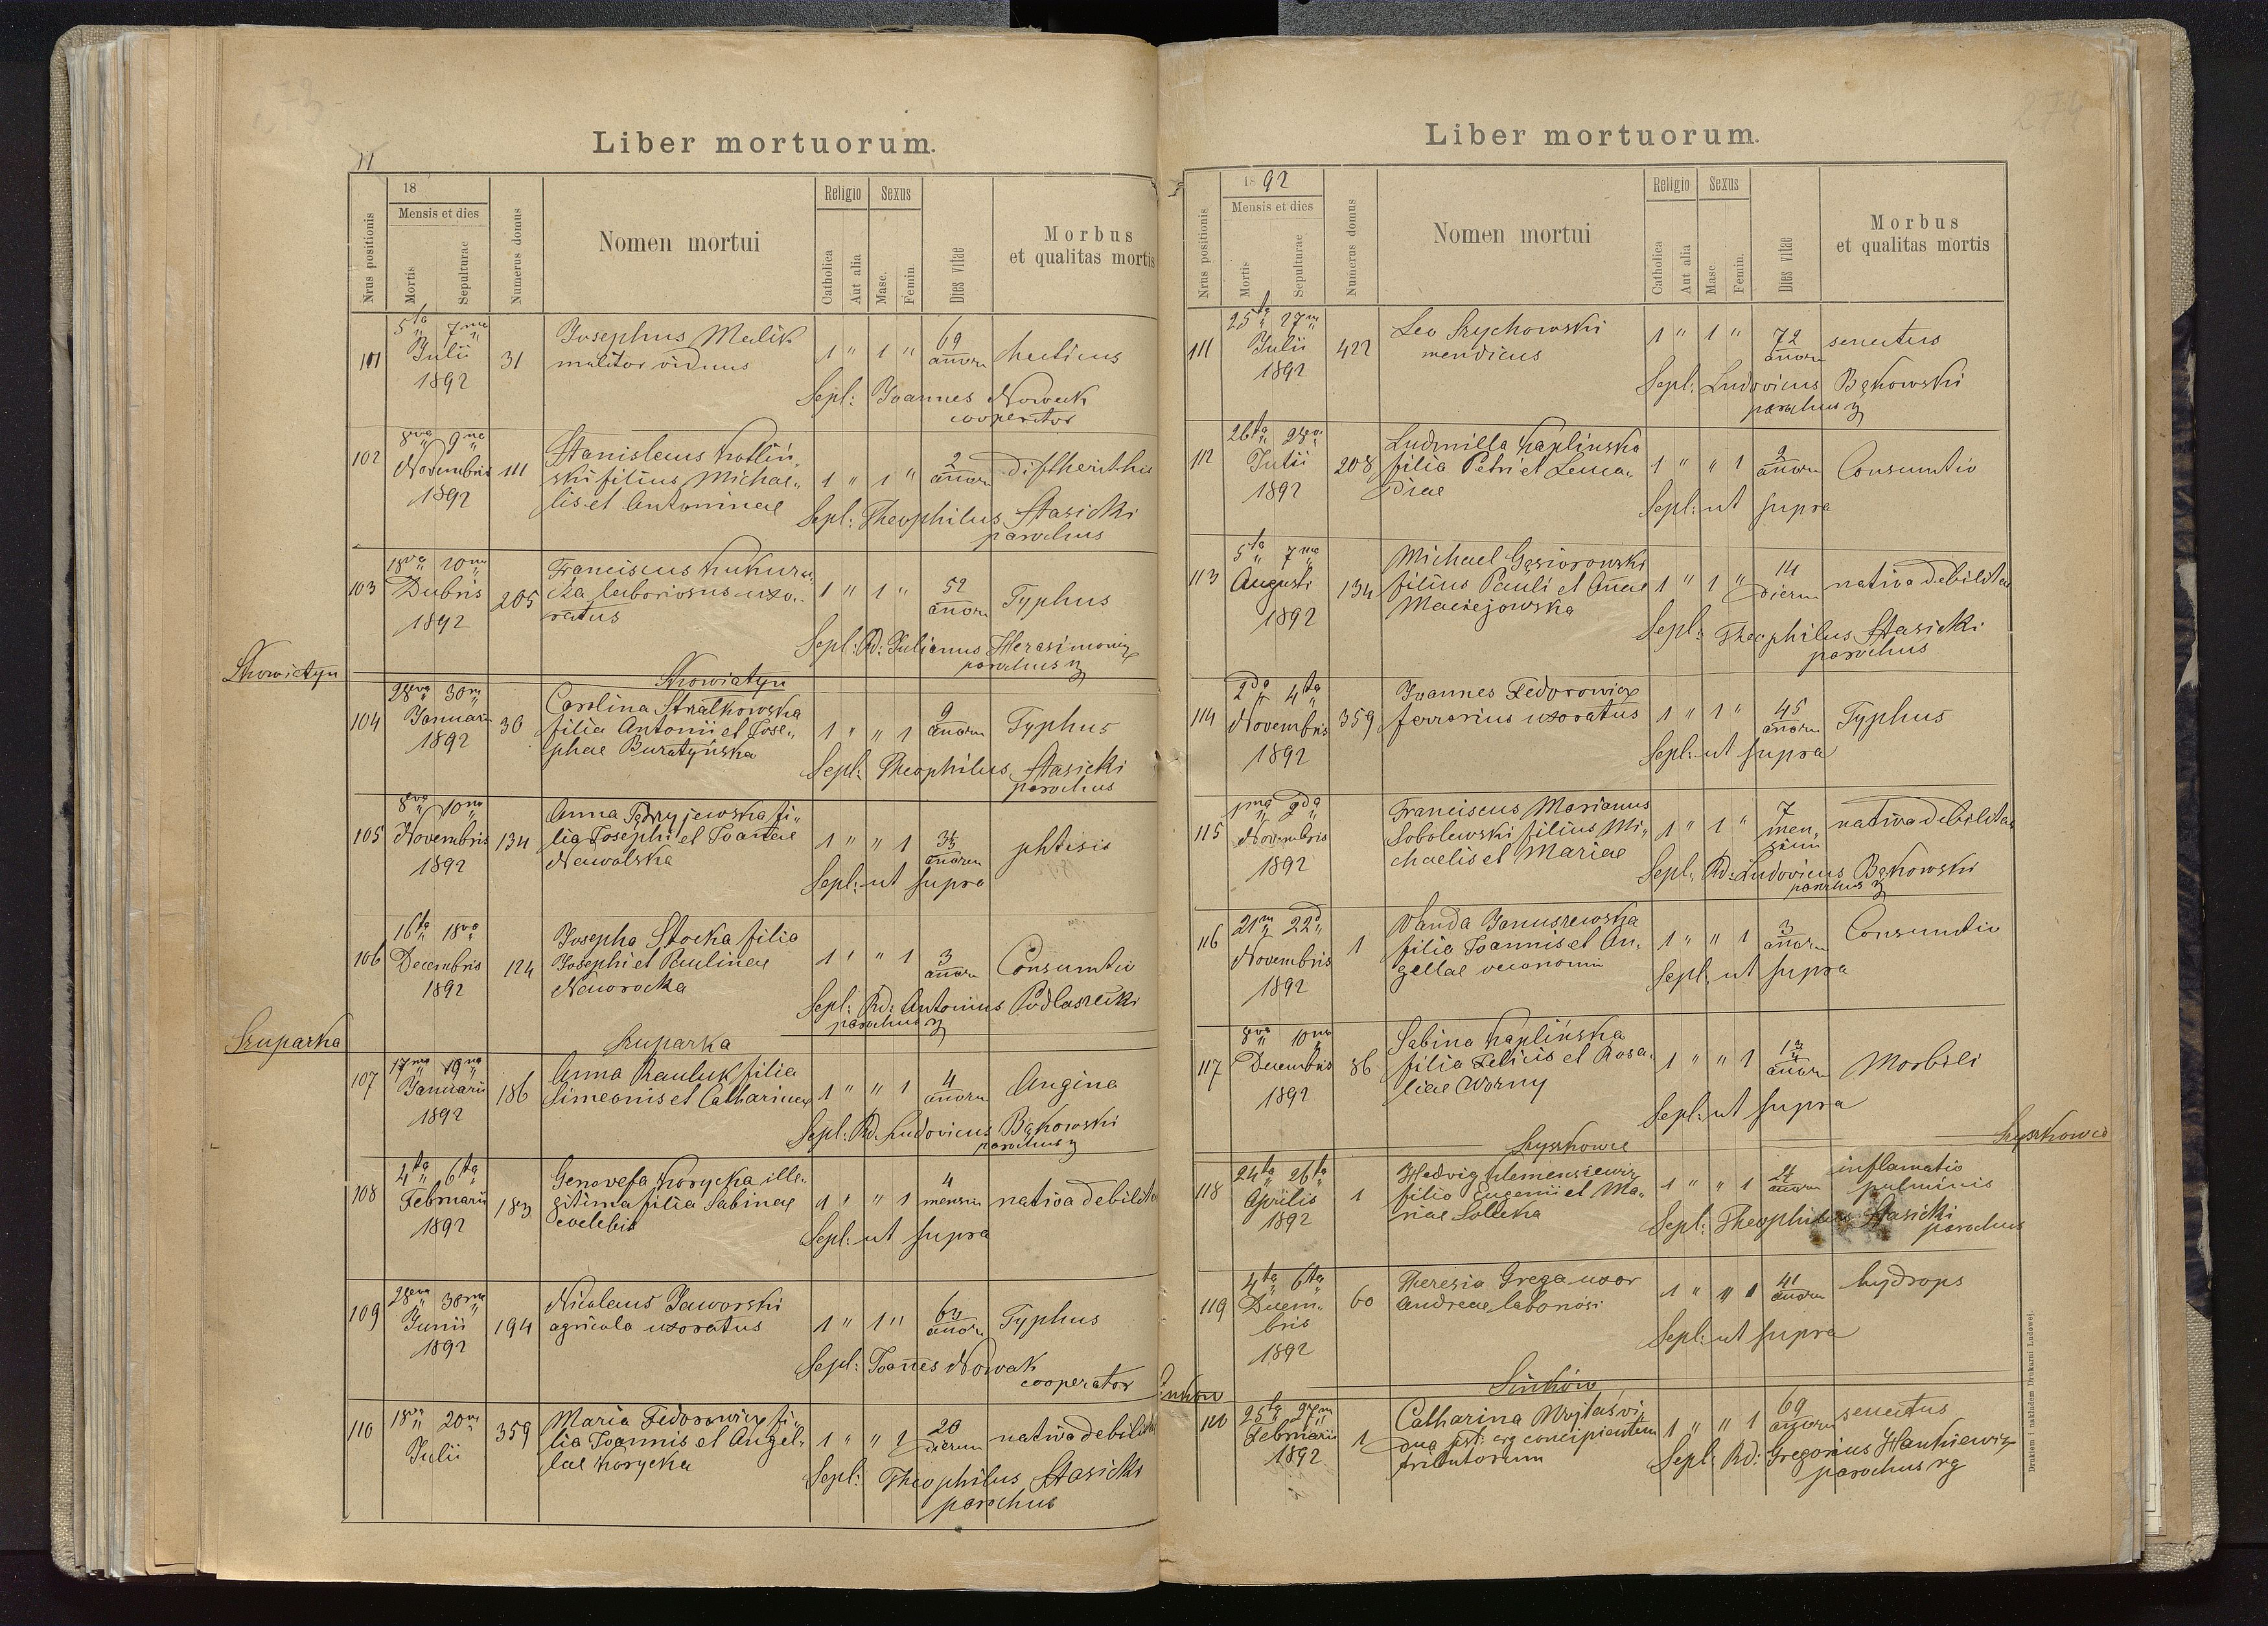 Liber mortuorum.
11
Nrus positionis
18
Mensis et dies
Mortis
Sepulturae
Numerus domus
Nomen mortui
Religio
Catholica
Aut alia
Sexus
Masc.
Femin
Dies vitae
Morbus
et qualitas mortis
101 5ta 7ma Julii 1892 31
Josephus Malik
molitor viduus
1 " 1 " 69 annorum hecticus
Sepl: Joannes Nowak
cooperator
102 8va 9na Novembris 1892 111
Stanislaus Kotliń„
ski filius Michae„
lis et Antoninae
1 " 1 " 2 annorum diftherithis
Sepl: Theophilus Stasicki
parochus
103 18va 20ma Xbris 1892 205
Franciscus Kukurudza
laboriosus uxo„
ratus
1 " 1 " 52 annorum Typhus
Sepl: Rd: Julianus Herasimowicz
parochus
Skowiatyn
Skowiatyn
104 28va 30ma Januarii 1892 30
Carolina Stratkowska
filia Antonii et Jose„
phae Buratyńska
1 " " 1 9 annorum Typhus
Sepl: Theophilus Stasicki
parochus
105 8va 10ma Novembris 1892 134
Anna Jędryjewska fi„
lia Josephi et Joannae
Nawolska
1 " " 1 annorum phtisis
Sepl: ut supra
106 16ta 18va Decembris 1892 124
Josepha Stocka filia
Josephi et Paulinae
Naworocka
1 " " 1 3 annorum Consumtio
Sepl: Rd: Antonius Podlasecki
parochus
Szuparka
Szuparka
107 17ma 19na Januarii 1892 186
Anna Pauluk filia
Simeonis et Catharinae
1 " " 1 4 annorum Angina
Sepl: Rd: Ludovicus Bąkowski
parochus
108 4ta 6ta Februarii 1892 183
Genovefa Korycka ille„
gitima filia Sabinae
coelebis
1 " " 1 4 mensium nativa debilitas
Sepl: ut supra
109 28va 30ma Junii 1892 194
Nicolaus Jaworski
agricola uxoratus
1 " 1 " 63 annorum Typhus
Sepl: Joannes Nowak
cooperator
110 18va 20ma Julii 359
Maria Fedorowicz fi„
lia Joannis et Angel„
lae Korycka
1 " " 1 20 dierum nativa debilitas
Sepl: Theophilus Stasicki
parochus
274
Liber mortuorum.
Nrus positionis
1892
Mensis et dies
Mortis
Sepulturae
Numerus domus
Nomen mortui
Religio
Catholica
Aut alia
Sexus
Masc
Femin.
Dies vitae
Morbus
et qualitas mortis
111 25ta 27ma Julii 1892 422
Leo Szychowski
mendicus
1 " 1 " 72 annorum senectus
Sepl: Ludovicus Bąkowski
parochus
112 26ta 28va Julii 1892 208
Ludmilla Kaplinska
filia Petri et Leuca„
diae
1 " " 1 2 annorum Consumtio
Sepl: ut supra
113 5ta 7ma Augusti 1892 134
Michael Gąsiorowski
filius Pauli et Annae
Maciejowska
1 " 1 " 14 dierum nativa debilitas
Sepl: Theophilus Stasicki
parochus
114 2da 4ta Novembris 1892 359
Joannes Fedorowicz
ferrarius uxoratus
1 " 1 " 45 annorum Typhus
Sepl: ut supra
115 1ma 2da Novembris 1892
Franciscus Marianus
Sobolewski filius Mi„
chaelis et Mariae
1 " 1 " 7 men„
sium nativa debilitas
Sepl: Rd: Ludovicus Bąkowski
parochus
116 21ma 22da Novembris 1892 1
Wanda Januszewska
filia Joannis et An„
gellae oeconomi
1 " " 1 3 annorum Consumtio
Sepl: ut supra
117 8va 10ma Decembris 1892 86
Sabina Kaplińska
filia Felicis et Rosa„
liae Worny
1 " " 1 annorum Morbili
Sepl: ut supra
Szyszkowce
Szyszkowce
118 24ta 26ta Aprilis 1892 1
Hedvig Klemensiewicz
filia Eugenii et Ma„
riae Solecka
1 " " 1 annorum inflamatio
pulminis
Sepl: Theophilus Stasicki
parochus
119 4ta 6ta Decem„
bris 1892 60
Theresia Grega uxor
Andreae laboriosi
1 " " 1 41 annorum hydrops
Sepl: ut supra
Sinków
Sinków
120 25ta 27ma Februarii 1892 1
Catharina Wojtaś vi„
dua pst: erg concipientem
tributorum
1 " " 1 69 annorum senectus
Sepl: Rd: Gregorius Hankiewicz
parochus rg
Drukiem i nakładem Drukarni Ludowej